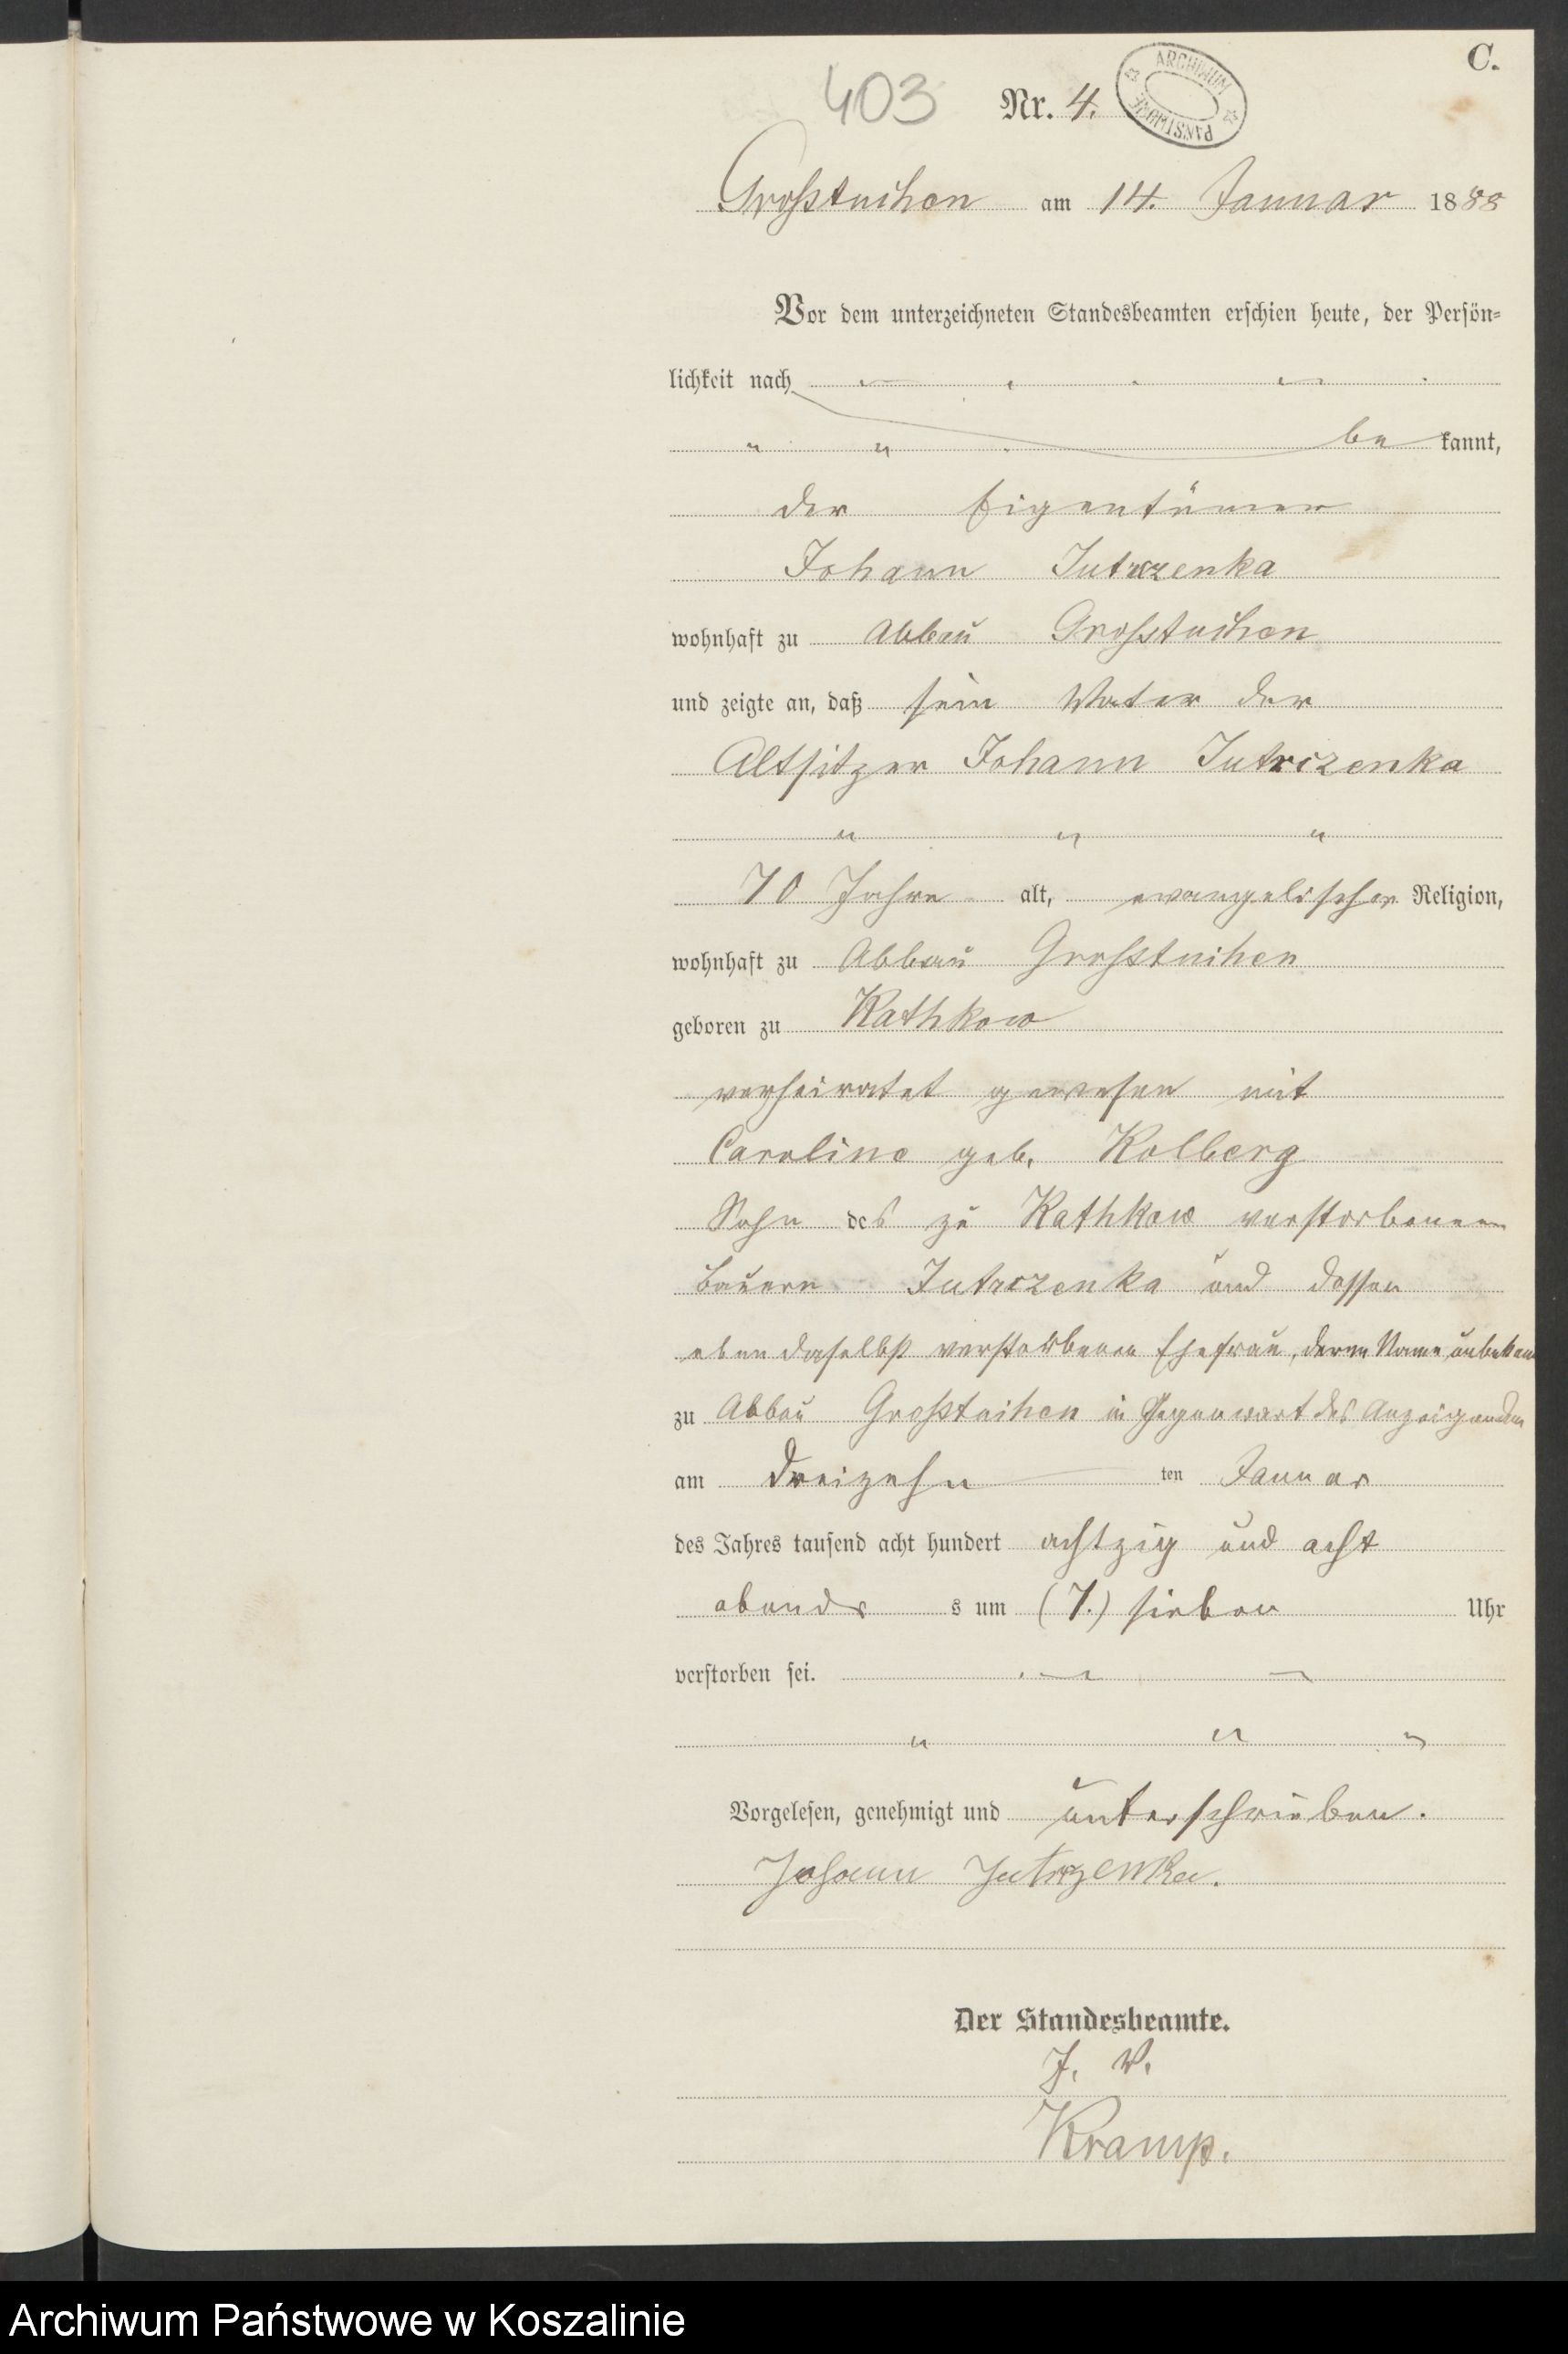 C.
403 Nr. 4.
ARCHIWUM PAŃSTWOWE
Großtuchen am 14. Januar 1888
Vor dem unterzeichneten Standesbeamten erschien heute, der Persön-
lichkeit nach
be kannt,
der Eigentümer
Johann Jutrzenka
wohnhaft zu Abbau Großtuchen
und zeigte an, daß sein Vater der
Altsitzer Johann Jutrczenka
70 Jahre alt, evangelischer Religion,
wohnhaft zu Abbau Großtuchen
geboren zu Kathkow
verheiratet gewesen mit
Caroline geb. Kolberg
Sohn des zu Kathkow verstorbenen
Bauern Jutrczenka und dessen
eben daselbst verstorbenen Ehefrau, deren Name unbekann
zu Abbau Großtuchen in Gegenwart des Anzeigenden
am dreizehn ten Januar
des Jahres tausend acht hundert achtzig und acht
abends s um (7.) sieben Uhr
verstorben sei.
Vorgelesen, genehmigt und unterschrieben.
Johann Jutrzenka.
Der Standesbeamte.
J. V.
Kramp.
Archiwum Państwowe w Koszalinie